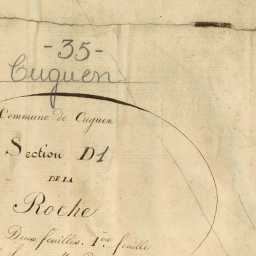 -35-
Cuguen
Commune de Cuguen
Section D1
DE LA
Roche
Deux feuilles. 1ère feuille